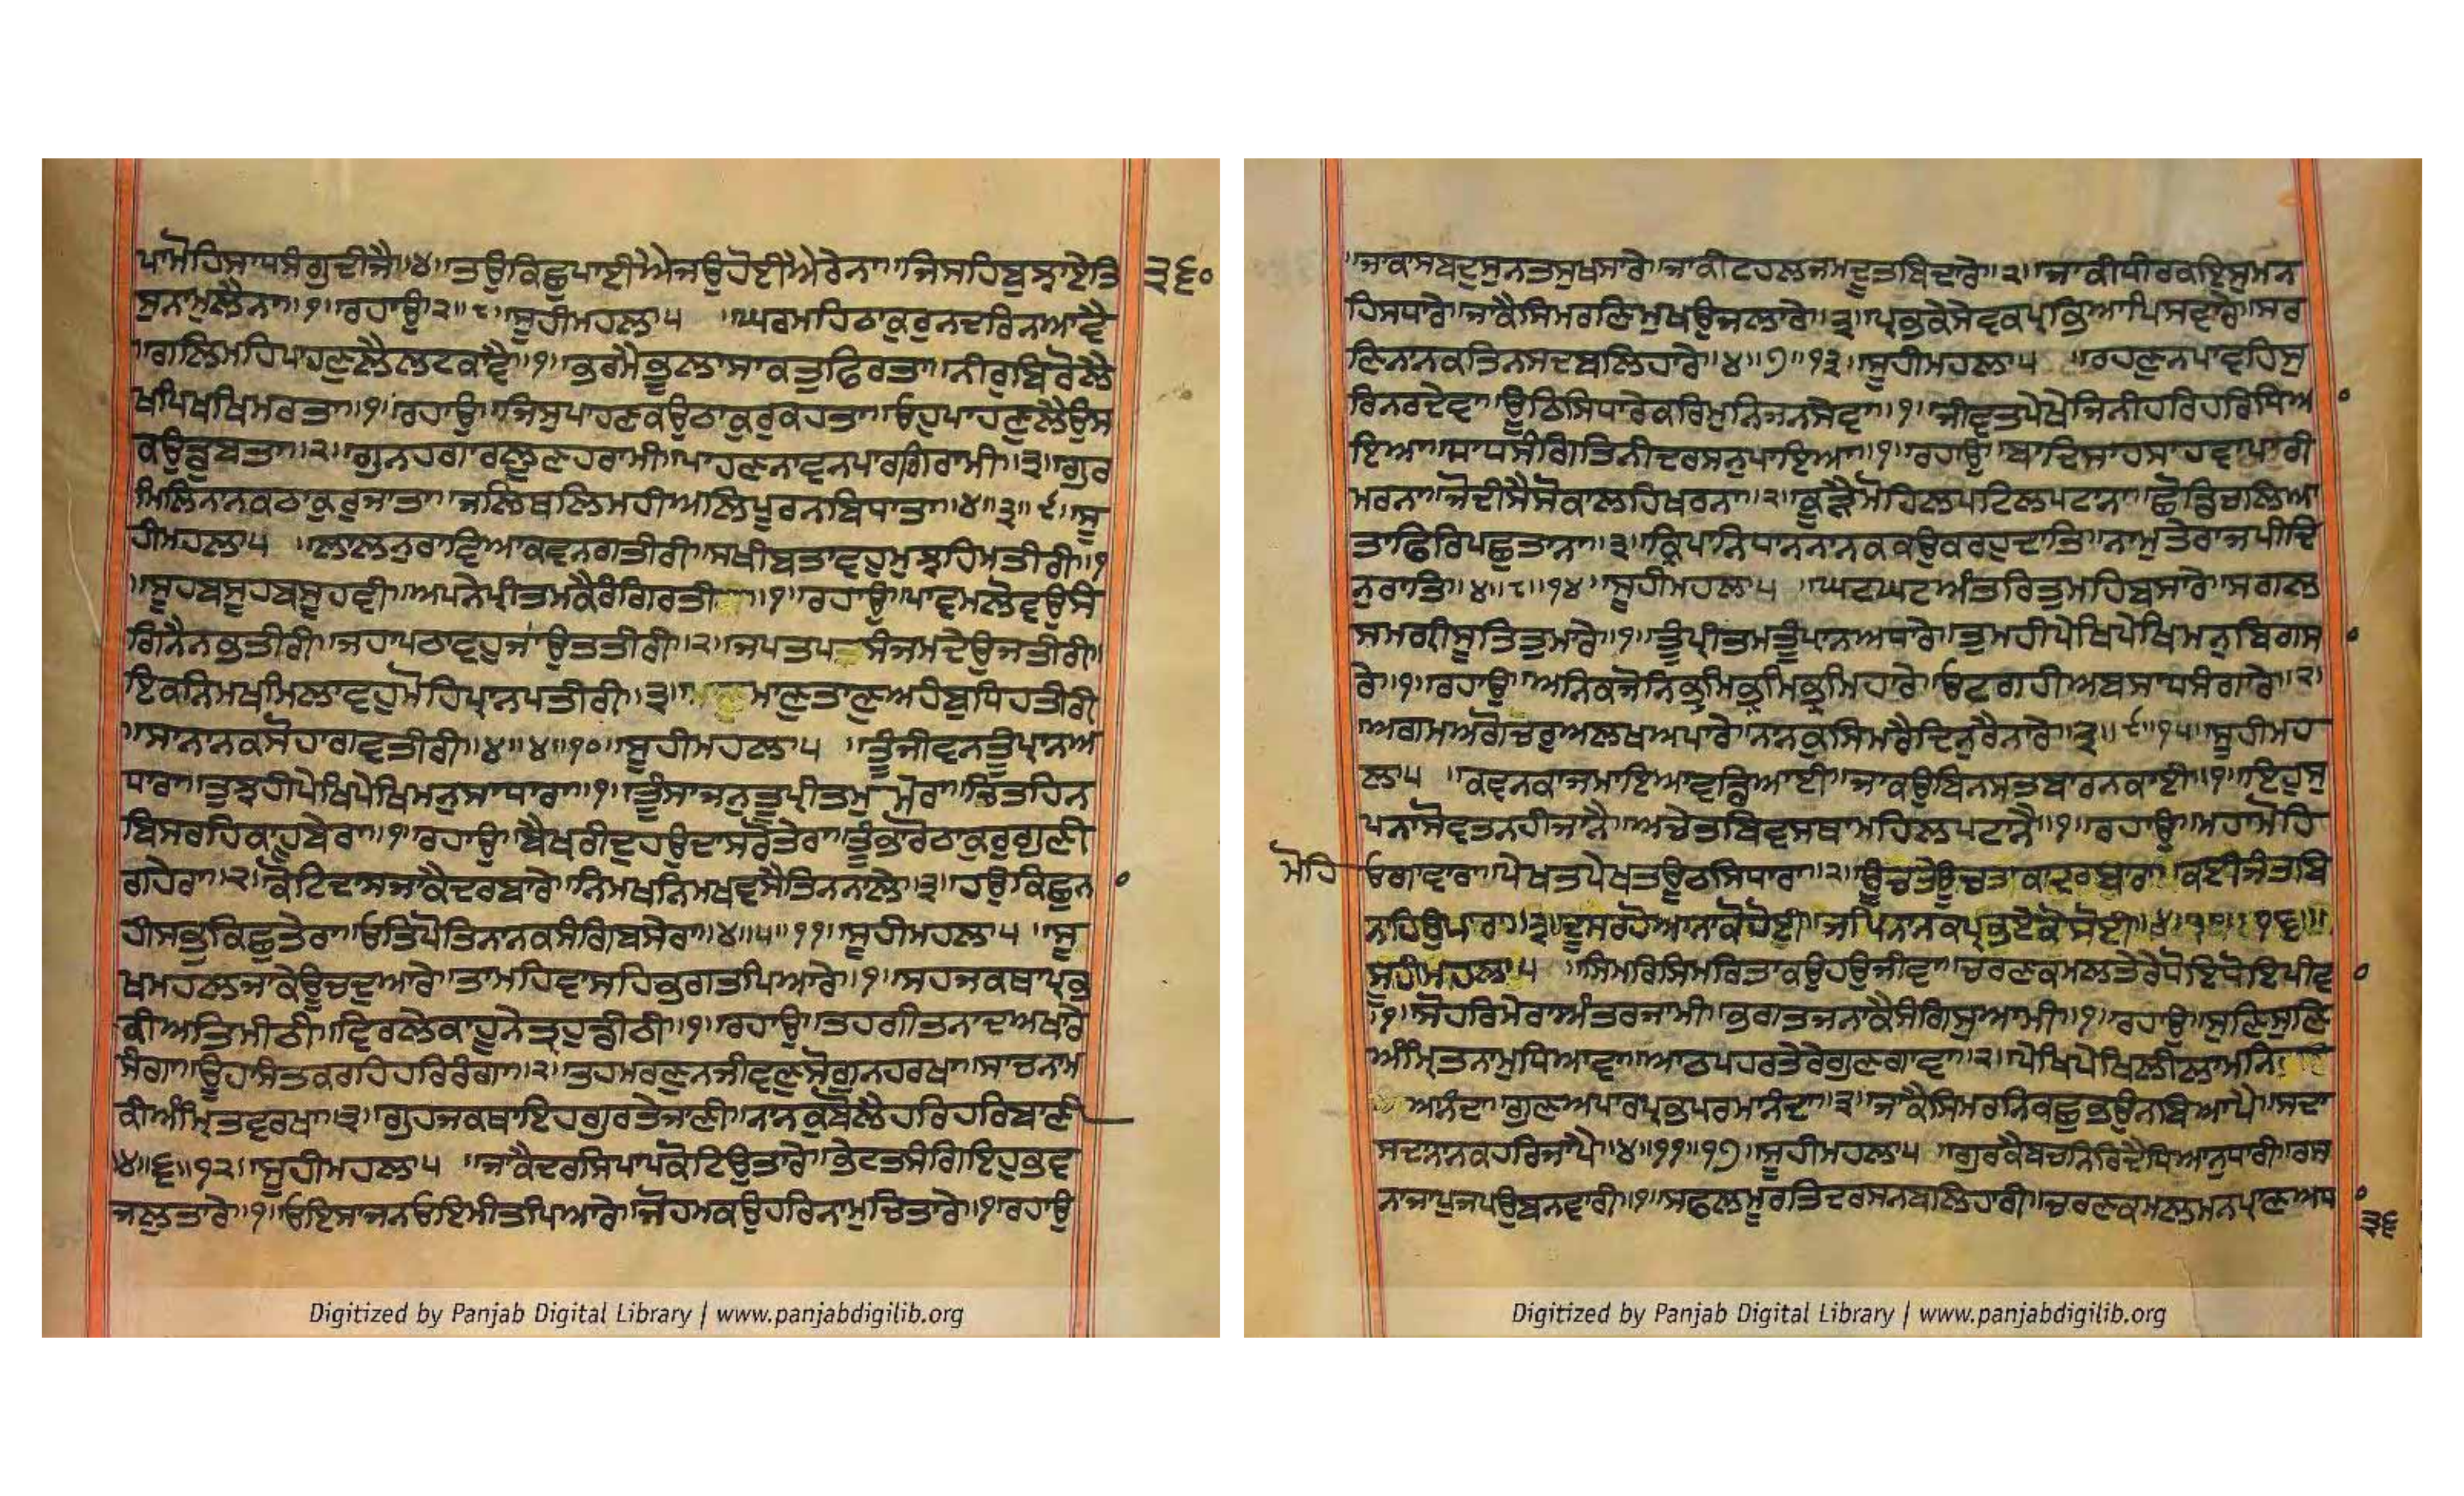 ਪਾਮੋਹਿਸਾਧਸੰਗੁਦੀਜੈ॥੪॥ਤਉਕਿਛੁਪਾਈਐਜਉਹੋਈਐਰੇਨਾ॥ਜਿਸਹਿਬੁਝਾਏਤਿ ੩੬੦
ਸੁਨਾਮੁਲੈਨਾ॥੧॥ਰਹਾਉ॥੨॥੮॥ਸੂਹੀਮਹਲਾ੫ ॥ਘਰਮਹਿਠਾਕੁਰੁਨਦਰਿਨਆਵੈ
॥ਗਲਿਮਹਿਪਾਹਣੁਲੈਲਟਕਾਵੈ॥੧॥ਭਰਮੇਭੂਲਾਸਾਕਤੁਫਿਰਤਾ॥ਨੀਰੁਬਿਰੋਲੈ
ਖਪਿਖਪਿਮਰਤਾ॥੧॥ਰਹਾਉ॥ਜਿਸੁਪਾਹਣਕਉਠਾਕੁਰੁਕਹਤਾ॥ਓਹੁਪਾਹਣੁਲੈਉਸ
ਕਉਡੁਬਤਾ॥੨॥ਗੁਨਹਗਾਰਲੂਣਹਰਾਮੀ॥ਪਾਹਣਨਾਵਨਪਾਰਗਿਰਾਮੀ॥੩॥ਗੁਰ
ਮਿਲਿਨਾਨਕਠਾਕੁਰੁਜਾਤਾ॥ਜਲਿਥਲਿਮਹੀਅਲਿਪੂਰਨਬਿਧਾਤਾ॥੪॥੩॥੯॥ਸੂ
ਹੀਮਹਲਾ੫ ॥ਲਾਲਨੁਰਾਵਿਆਕਵਨਗਤੀਰੀ॥ਸਖੀਬਤਾਵਹੁਮੁਝਹਿਮਤੀਰੀ॥੧
॥ਸੂਹਬਸੂਹਬਸੂਹਵੀ॥ਅਪਨੇਪ੍ਰੀਤਮਕੈਰੰਗਿਰਤੀ॥੧॥ਰਹਾਉ॥ਪਾਵਮਲੋਵਉਸੰ
ਗਿਨੈਨਭਤੀਰੀ॥ਜਹਾਪਠਾਵਹੁਜਾਂਉਤਤੀਰੀ॥੨॥ਜਪਤਪਸੰਜਮਦੇਉਜਤੀਰੀ॥
ਇਕਨਿਮਖਮਿਲਾਵਹੁਮੋਹਿਪ੍ਰਾਨਪਤੀਰੀ॥੩॥ਮਾਣੁਤਾਣੁਅਹੰਬੁਧਿਹਤੀਰੀ
॥ਸਾਨਾਨਕਸੋਹਾਗਵਤੀਰੀ॥੪॥੪॥੧੦॥ਸੂਹੀਮਹਲਾ੫ ॥ਤੂੰਜੀਵਨਤੂੰਪ੍ਰਾਨਅ
ਧਾਰਾ॥ਤੁਝਹੀਪੇਖਿਪੇਖਿਮਨੁਸਾਧਾਰਾ॥੧॥ਤੂੰਸਾਜਨੁਤੂੰਪ੍ਰੀਤਮੁਮੇਰਾ॥ਚਿਤਹਿਨ
ਬਿਸਰਹਿਕਾਹੂਬੇਰਾ॥੧॥ਰਹਾਉ॥ਬੈਖਰੀਦੁਹਉਦਾਸਰੋਤੇਰਾ॥ਤੂੰਭਾਰੋਠਾਕੁਰੁਗੁਣੀ
ਗਹੇਰਾ॥੨॥ਕੋਟਿਦਾਸਜਾਕੈਦਰਬਾਰੇ॥ਨਿਮਖਨਿਮਖਵਸੈਤਿਨਨਾਲੇ॥੩॥ਹਉਕਿਛੁਨ
ਹੀਸਭੁਕਿਛੁਤੇਰਾ॥ਓਤਿਪੋਤਿਨਾਨਕਸੰਗਿਬਸੇਰਾ॥੪॥੫॥੧੧॥ਸੂਹੀਮਹਲਾ੫ ॥ਸੂ
ਖਮਹਲਜਾਕੇਊਚਦੁਆਰੇ॥ਤਾਮਹਿਵਾਸਹਿਭਗਤਪਿਆਰੇ॥੧॥ਸਹਜਕਥਾਪ੍ਰਭ
ਕੀਅਤਿਮੀਠੀ॥ਵਿਰਲੈਕਾਹੂਨੇਤ੍ਰਹੁਡੀਠੀ॥੧॥ਰਹਾਉ॥ਤਹਗੀਤਨਾਦਅਖਾਰੇ
ਸੰਗਾ॥ਊਹਾਸੰਤਕਰਹਿਹਰਿਰੰਗਾ॥੨॥ਤਹਮਰਣੁਨਜੀਵਣੁਸੋਗੁਨਹਰਖਾ॥ਸਾਚਨਾਮ
ਕੀਅੰਮ੍ਰਿਤਵਰਖਾ॥੩॥ਗੁਹਜਕਥਾਇਹਗੁਰਤੇਜਾਣੀ॥ਨਾਨਕੁਬੋਲੈਹਰਿਹਰਿਬਾਣੀ
੪॥੬॥੧੨॥ਸੂਹੀਮਹਲਾ੫ ॥ਜਾਕੈਦਰਸਿਪਾਪਕੋਟਿਉਤਾਰੇ॥ਭੇਟਤਸੰਗਿਇਹੁਭਵ
ਜਲੁਤਾਰੇ॥੧॥ਓਇਸਾਜਨਓਇਮੀਤਪਿਆਰੇ॥ਜੋਹਮਕਉਹਰਿਨਾਮੁਚਿਤਾਰੇ॥੧॥ਰਹਾਉ
Digitized by Panjab Digital Library | www.panjabdigilib.org
॥ਜਾਕਾਸਬਦੁਸੁਨਤਸੁਖਸਾਰੇ॥ਜਾਕੀਟਹਲਜਮਦੂਤਬਿਦਾਰੇ॥੨॥ਜਾਕੀਧੀਰਕਇਸੁਮਨ
ਹਿਸਧਾਰੇ॥ਜਾਕੈਸਿਮਰਣਿਮੁਖਉਜਲਾਰੇ॥੩॥ਪ੍ਰਭਕੇਸੇਵਕਪ੍ਰਭਿਆਪਿਸਵਾਰੇ॥ਸਰ
ਣਿਨਾਨਕਤਿਨਸਦਬਲਿਹਾਰੇ॥੪॥੭॥੧੩॥ਸੂਹੀਮਹਲਾ੫ ॥ਰਹਣੁਨਪਾਵਹਿਸੁ
ਰਿਨਰਦੇਵਾ॥ਊਠਿਸਿਧਾਰੇਕਰਿਮੁਨਿਜਨਸੇਵਾ॥੧॥ਜੀਵਤਪੇਖੇਜਿਨੀਹਰਿਹਰਿਧਿਆ
ਇਆ॥ਸਾਧਸੰਗਿਤਿਨੀਦਰਸਨੁਪਾਇਆ॥੧॥ਰਹਾਉ॥ਬਾਦਿਸਾਹਸਾਹਵਾਪਾਰੀ
ਮਰਨਾ॥ਜੋਦੀਸੈਸੋਕਾਲਹਿਖਰਨਾ॥੨॥ਕੂੜੈਮੋਹਿਲਪਟਿਲਪਟਾਨਾ॥ਛੋਡਿਚਲਿਆ
ਤਾਫਿਰਿਪਛੁਤਾਨਾ॥੩॥ਕ੍ਰਿਪਾਨਿਧਾਨਨਾਨਕਕਉਕਰਹੁਦਾਤਿ॥ਨਾਮੁਤੇਰਾਜਪੀਦਿ
ਨੁਰਾਤਿ॥੪॥੮॥੧੪॥ਸੂਹੀਮਹਲਾ੫ ॥ਘਟਘਟਅੰਤਰਿਤੁਮਹਿਬਸਾਰੇ॥ਸਗਲ
ਸਮਗ੍ਰੀਸੂਤਿਤੁਮਾਰੇ॥੧॥ਤੂੰਪ੍ਰੀਤਮਤੂੰਪ੍ਰਾਨਅਧਾਰੇ॥ਤੁਮਹੀਪੇਖਿਪੇਖਿਮਨੁਬਿਗਸਾ
ਰੇ॥੧॥ਰਹਾਉ॥ਅਨਿਕਜੋਨਿਭ੍ਰਮਿਭ੍ਰਮਿਭ੍ਰਮਿਹਾਰੇ॥ਓਟਗਹੀਅਬਸਾਧਸੰਗਾਰੇ॥੨॥
ਅਗਮਅਗੋਚਰੁਅਲਖਅਪਾਰੇ॥ਨਾਨਕੁਸਿਮਰੈਦਿਨੁਰੈਨਾਰੇ॥੩॥੯॥੧੫॥ਸੂਹੀਮਹ
ਲਾ੫ ॥ਕਵਨਕਾਜਮਾਇਆਵਡਿਆਈ॥ਜਾਕਉਬਿਨਸਤਬਾਰਨਕਾਈ॥੧॥ਇਹੁਸੁ
ਪਨਾਸੋਵਤਨਹੀਜਾਨੈ॥ਅਚੇਤਬਿਵਸਥਾਮਹਿਲਪਟਾਨੈ॥੧॥ਰਹਾਉ॥ਮਹਾਮੋਹਿ
ਮੋਹਿ ਓਗਾਵਾਰਾ॥ਪੇਖਤਪੇਖਤਊਠਿਸਿਧਾਰਾ॥੨॥ਊਚਤੇਊਚਤਾਕਾਦਰਬਾਰਾ॥ਕਈਜੰਤਬਿ
ਨਾਹਿਉਪਾਰਾ॥੩॥ਦੂਸਰਹੋਆਨਾਕੋਹੋਈ॥ਜਪਿਨਾਨਕਪ੍ਰਭਏਕੋਸੋਈ॥੪॥੧੦॥੧੬॥
ਸੂਹੀਮਹਲਾ੫ ॥ਸਿਮਰਿਸਿਮਰਿਤਾਕਉਹਉਜੀਵਾ॥ਚਰਣਕਮਲਤੇਰੇਧੋਇਧੋਇਪੀਵਾ
॥੧॥ਸੋਹਰਿਮੇਰਾਅੰਤਰਜਾਮੀ॥ਭਗਤਜਨਾਕੈਸੰਗਿਸੁਆਮੀ॥੧॥ਰਹਾਉ॥ਸੁਣਿਸੁਣਿ
ਅੰਮ੍ਰਿਤਨਾਮੁਧਿਆਵਾ॥ਆਠਪਹਰਤੇਰੇਗੁਣਗਾਵਾ॥੨॥ਪੇਖਿਪੇਖਿਲੀਲਾਮਨਿ
ਅਨੰਦਾ॥ਗੁਣਅਪਾਰਪ੍ਰਭਪਰਮਾਨੰਦਾ॥੩॥ਜਾਕੈਸਿਮਰਨਿਕਛੁਭਉਨਬਿਆਪੈ॥ਸਦਾ
ਸਦਾਨਾਨਕਹਰਿਜਾਪੈ॥੪॥੧੧॥੧੭॥ਸੂਹੀਮਹਲਾ੫ ॥ਗੁਰਕੈਬਚਨਿਰਿਦੈਧਿਆਨੁਧਾਰੀ॥ਰਸ
ਨਾਜਾਪੁਜਪਉਬਨਵਾਰੀ॥੧॥ਸਫਲਮੂਰਤਿਦਰਸਨਬਲਿਹਾਰੀ॥ਚਰਣਕਮਲਮਨਪ੍ਰਾਣਅਧ
੩੬
Digitized by Panjab Digital Library | www.panjabdigilib.org